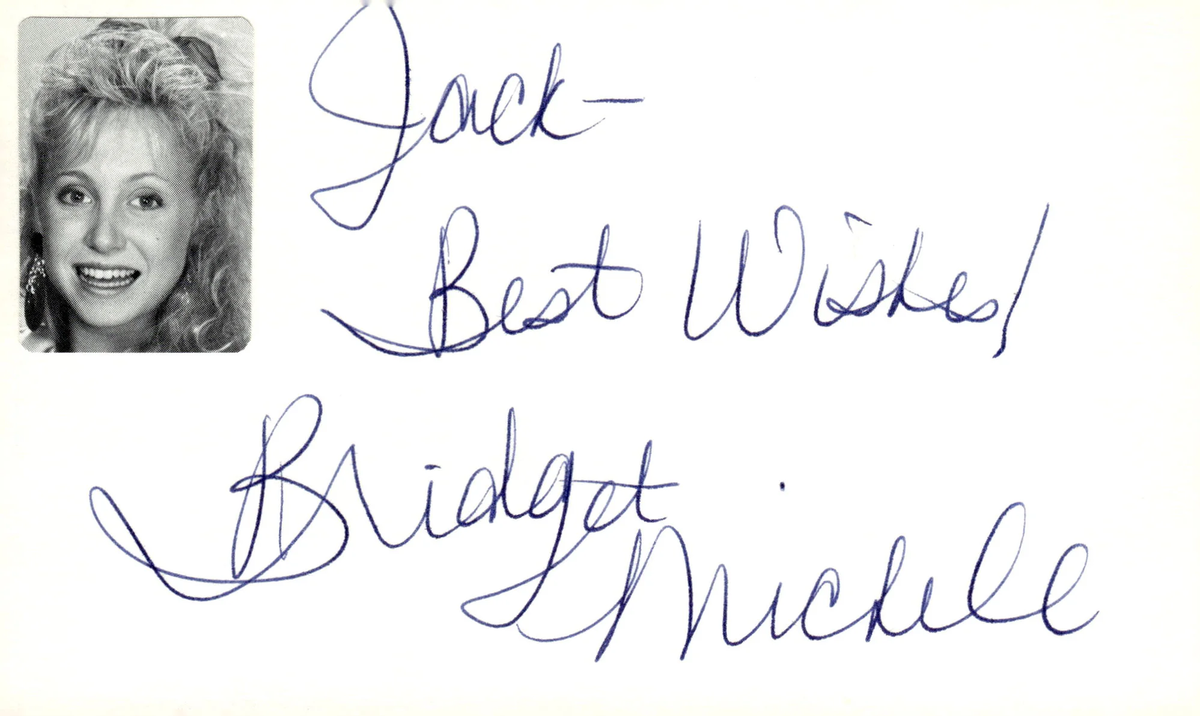 Jack-
Best Wishes!
Bridget
Michele